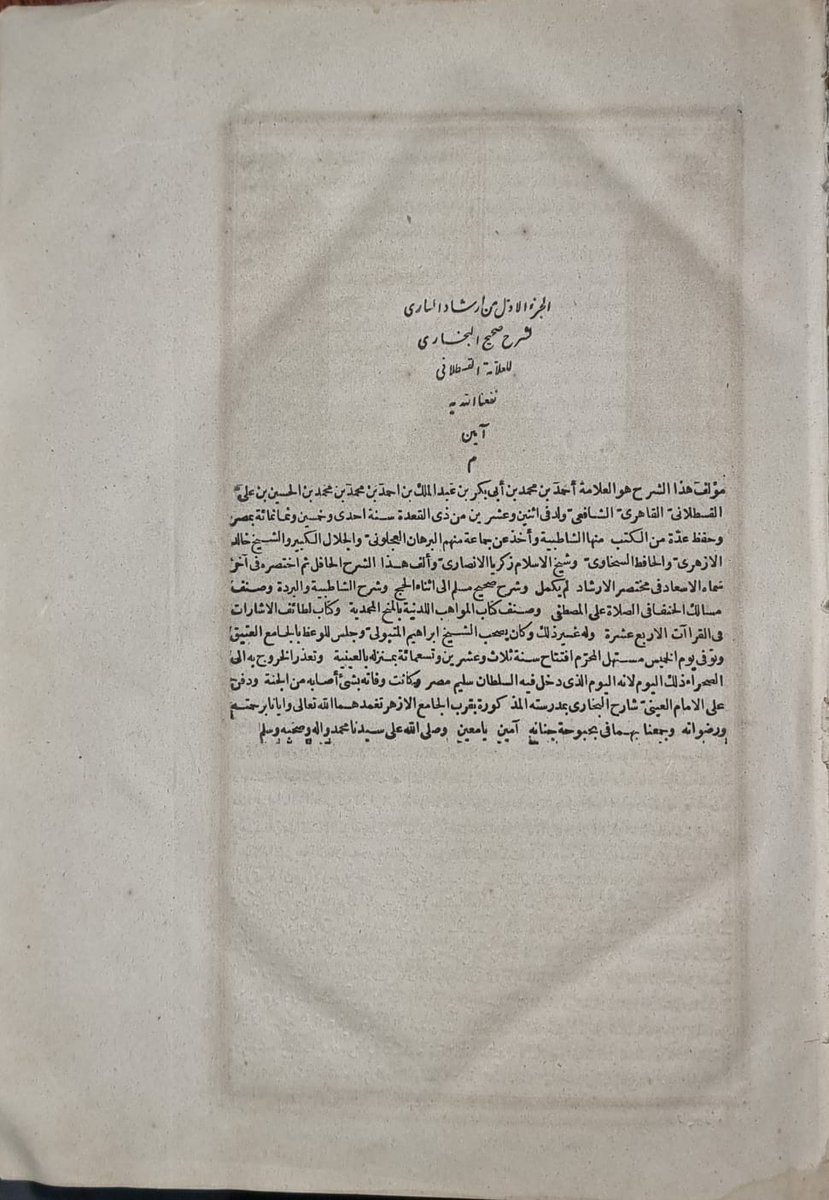 الجزء الاول من ارشاد السارى
لشرح صحيح البخارى
للعلامة القسطلانى
نفعنا الله به
آمين
م
مؤلف هذا الشرح هو العلامة أحمد بن محمد بن أبى بكر بن عبد الملك بن احمد بن محمد بن محمد بن الحسين بن على
القسطلانى القاهرى الشافعى ولد فى اثنين وعشرين من ذى القعدة سنة احدى وخمسين وثمانمائة بمصر
وحفظ عدة من الكتب منها الشاطبية وأخذ عن جماعة منهم البرهان العجلونى والجلال الكبير والشيخ خالد
الازهرى والحافظ السخاوى وشيخ الاسلام زكريا الانصارى وألف هذا الشرح الحافل ثم اختصره فى آخر
سماه الاسعاد فى مختصر الارشاد لم يكمل وشرح صحيح مسلم الى اثناء الحج وشرح الشاطبية والبردة وصنف
مسالك الحنفا فى الصلاة على المصطفى وصنف كتاب المواهب اللدنية بالمنح المحمدية وكتاب لطائف الاشارات
فى القراآت الاربع عشرة وله غير ذلك وكان يصحب الشيخ ابراهيم المتبولى وجلس للوعظ بالجامع العتيق
وتوفى يوم الخميس مستهل المحرم افتتاح سنة ثلاث وعشرين وتسعمائة بمنزله بالعينية وتعذر الخروج به الى
الصحراء ذلك اليوم لانه اليوم الذى دخل فيه السلطان سليم مصر وكانت وفاته بشئ أصابه من الجنة ودفن
على الامام العينى شارح البخارى بمدرسته المذكورة بقرب الجامع الازهر تغمدهما الله تعالى وايانا برحمته
ورضوانه وجمعنا بهما فى بحبوحة جنانه آمين يامعين وصلى الله على سيدنا محمد واله وصحبه وسلم